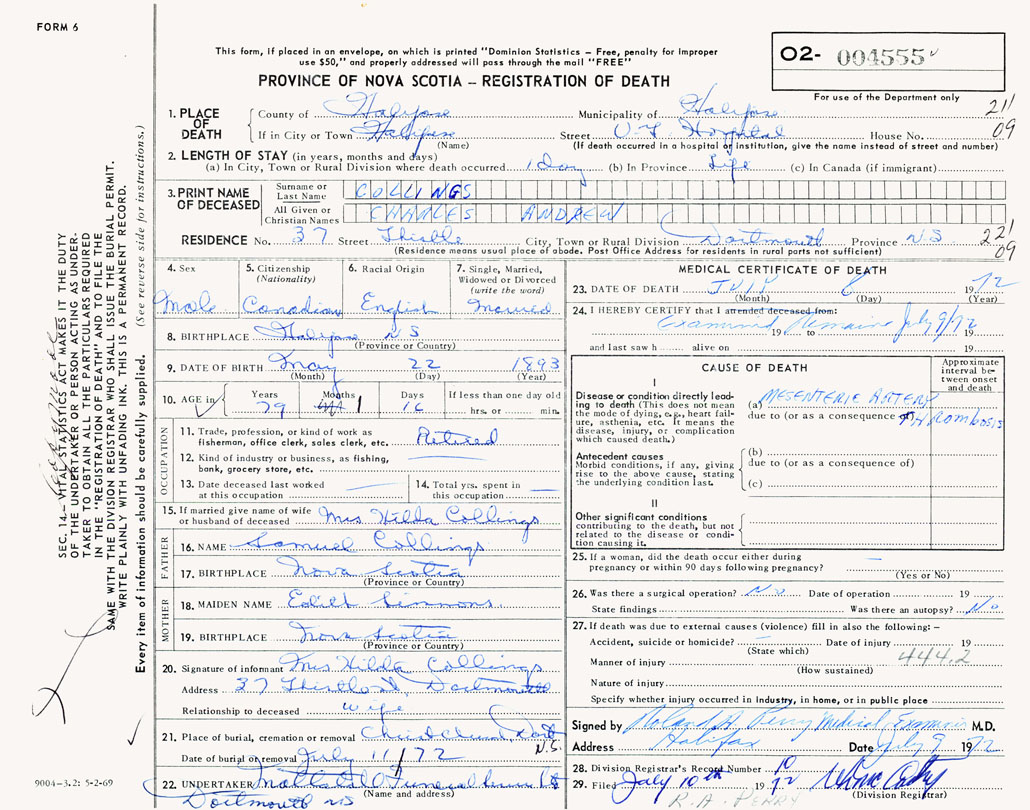 FORM 6
This form, if placed in an envelope, on which is printed "Dominion Statistics — Free, penalty for improper
use $50," and properly addressed will pass through the mail "FREE"
O2- 004555
PROVINCE OF NOVA SCOTIA – REGISTRATION OF DEATH
For use of the Department only
1. PLACE OF DEATH
County of Halifax Municipality of Halifax 211
If in City or Town Halifax Street V G Hospital House No. 09
(Name) (If death occurred in a hospital or institution, give the name instead of street and number)
2. LENGTH OF STAY (in years, months and days)
(a) In City, Town or Rural Division where death occurred 1 Day (b) In Province Life (c) In Canada (if immigrant)
3. PRINT NAME OF DECEASED
Surname or Last Name COLLINGS
All Given or Christian Names CHARLES ANDREW
RESIDENCE No. 37 Street Thistle City, Town or Rural Division Dartmouth Province N S 221
(Residence means usual place of abode. Post Office Address for residents in rural parts not sufficient) 09
4. Sex
Male
5. Citizenship
(Nationality)
Canadian
6. Racial Origin
English
7. Single, Married,
Widowed or Divorced
(write the word)
Married
8. BIRTHPLACE Halifax N S
(Province or Country)
9. DATE OF BIRTH May 22 1893
(Month) (Day) (Year)
10. AGE in Years Months Days If less than one day old
79 1 16 hrs. or min.
OCCUPATION
11. Trade, profession or kind of work as
fisherman, office clerk, sales clerk, etc. Retired
12. Kind of industry or business, as fishing,
bank, grocery store, etc.
13. Date deceased last worked
at this occupation
14. Total yrs. spent in
this occupation
15. If married give name of wife
or husband of deceased Mrs Hilda Collings
FATHER
16. NAME Samuel Collings
17. BIRTHPLACE Nova Scotia
(Province or Country)
MOTHER
18. MAIDEN NAME Edith Simmons
19. BIRTHPLACE Nova Scotia
(Province or Country)
20. Signature of informant Mrs Hilda Collings
Address 37 Thistle St, Dartmouth
Relationship to deceased Wife
21. Place of burial, cremation or removal Christ Church Dart
N.S.
Date of burial or removal July 11/72
22. UNDERTAKER Funeral Home
(Name and address)
Dartmouth NS
MEDICAL CERTIFICATE OF DEATH
23. DATE OF DEATH JULY 8 1972
(Month) (Day) (Year)
24. I HEREBY CERTIFY that I attended deceased from:
Examined Remains July 9/72
19 to 19
and last saw h alive on 19
CAUSE OF DEATH
Approximate
interval be-
tween onset
and death
I
Disease or condition directly lead-
ing to death (This does not mean
the mode of dying, e.g., heart fail-
ure, asthenia, etc. It means the
disease, injury, or complication
which caused death.)
(a) MESENTERIC ARTERY
due to (or as a consequence of) Thrombosis
Antecedent causes
Morbid conditions, if any, giving
rise to the above cause, stating
the underlying condition last.
(b)
due to (or as a consequence of)
(c)
II
Other significant conditions
contributing to the death, but not
related to the disease or condi-
tion causing it.
25. If a woman, did the death occur either during
pregnancy or within 90 days following pregnancy?
(Yes or No)
26. Was there a surgical operation? No Date of operation 19
State findings Was there an autopsy? No
27. If death was due to external causes (violence) fill in also the following: –
Accident, suicide or homicide? Date of injury 19
(State which) 444.2
Manner of injury
(How sustained)
Nature of injury
Specify whether injury occurred in industry, in home, or in public place
Signed by Roland H. Perry Medical Examiner M.D.
Address Halifax Date July 9 1972
28. Division Registrar's Record Number 10
29. Filed July 10th 1972
(Division Registrar)
R.A. PERRY
SEC. 14— VITAL STATISTICS ACT MAKES IT THE DUTY
OF THE UNDERTAKER OR PERSON ACTING AS UNDER-
TAKER TO OBTAIN ALL THE PARTICULARS REQUIRED
IN THE "REGISTRATION OF DEATH" AND TO FILE THE
SAME WITH THE DIVISION REGISTRAR WHO SHALL ISSUE THE BURIAL PERMIT.
WRITE PLAINLY WITH UNFADING INK. THIS IS A PERMANENT RECORD.
Every item of information should be carefully supplied. (See reverse side for instructions.)
9004–3.2: 5-2-69